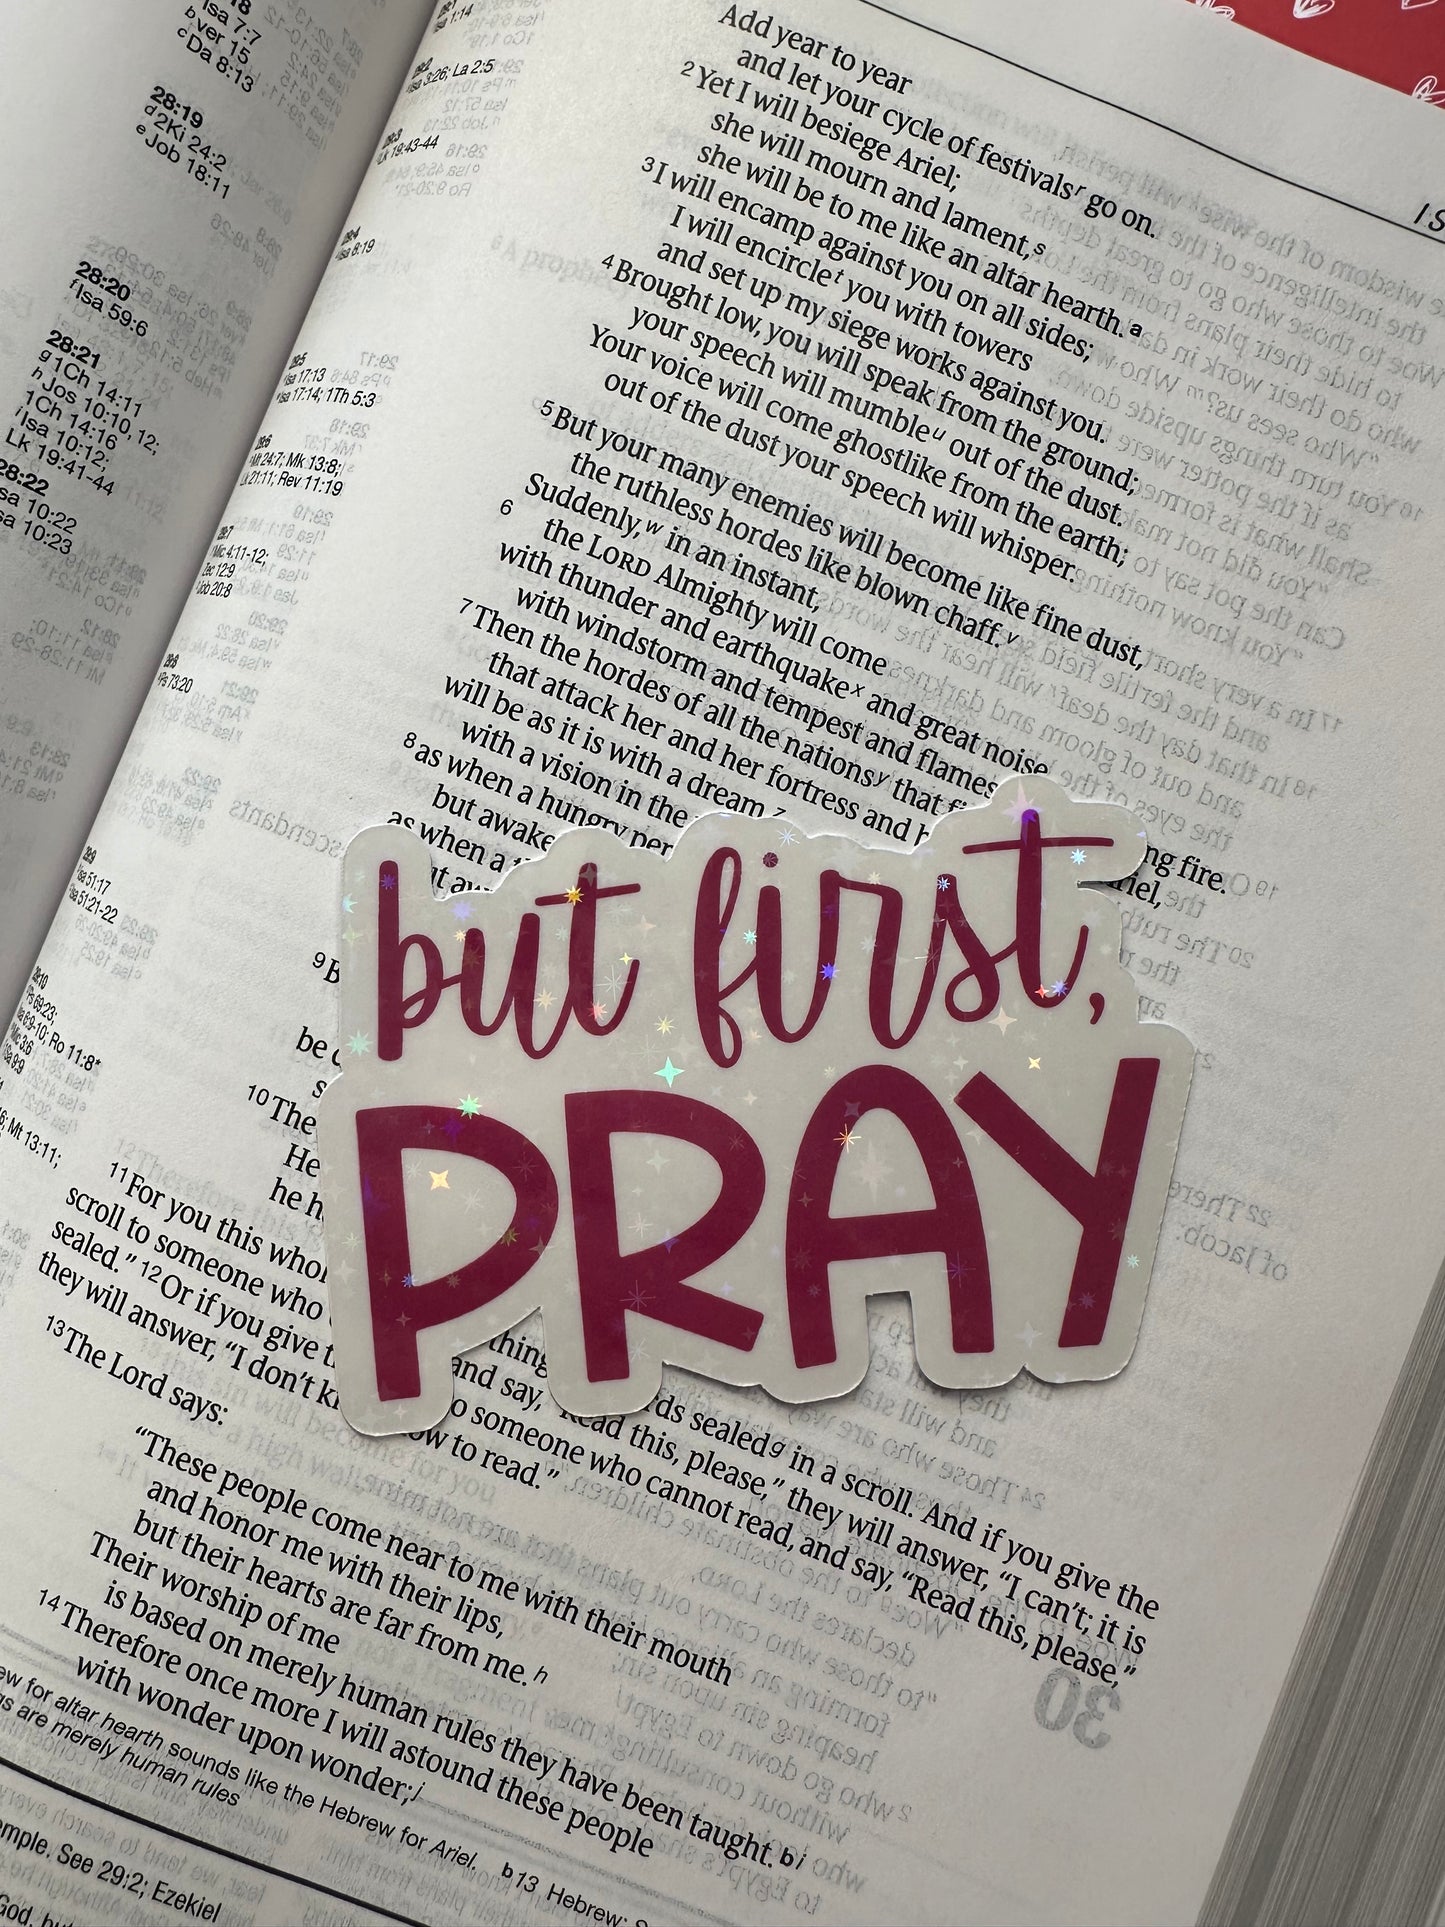 18
Isa 7:7
b ver 15
c Da 8:13
28:19
d 2Ki 24:2
e Job 18:11
28:20
f Isa 59:6
28:21
g 1Ch 14:11
h Jos 10:10, 12;
1Ch 14:16
i Isa 10:12;
Lk 19:41-44
28:22
sa 10:22
sa 10:23
1:14
3:26; La 2:5
Lk 19:43-44
Isa 8:19
Isa 17:13
Isa 17:14; 1Th 5:3
Mt 24:7; Mk 13:8;
Lk 21:11; Rev 11:19
Mic 4:11-12;
Zec 12:9
Job 20:8
Ps 73:20
Isa 51:17
Isa 51:21-22
Ps 69:23;
6:9-10; Ro 11:8*
Mic 3:6
Mt 13:11;
Add year to year
and let your cycle of festivals r go on.
2 Yet I will besiege Ariel;
she will mourn and lament, s
she will be to me like an altar hearth. a
3 I will encamp against you on all sides;
I will encircle t you with towers
and set up my siege works against you.
4 Brought low, you will speak from the ground;
your speech will mumble u out of the dust.
Your voice will come ghostlike from the earth;
out of the dust your speech will whisper.
5 But your many enemies will become like fine dust,
the ruthless hordes like blown chaff. v
Suddenly, w in an instant,
6 the LORD Almighty will come
with thunder and earthquake x and great noise,
with windstorm and tempest and flames ng fire.
7 Then the hordes of all the nations y that fi riel,
that attack her and her fortress and
will be as it is with a dream, z
with a vision in the
8 as when a hungry per
but awake
as when a
but first,
PRAY
9 B
be
s
10 The
He
he h
11 For you this whol thing rds sealed g in a scroll. And if you give the
scroll to someone who and say, "Read this, please," they will answer, "I can't; it is
sealed." 12 Or if you give o someone who cannot read, and say, "Read this, please,"
they will answer, "I don't k ow to read."
13 The Lord says:
"These people come near to me with their mouth
and honor me with their lips,
but their hearts are far from me. h
Their worship of me
is based on merely human rules they have been taught. b i
14 Therefore once more I will astound these people
with wonder upon wonder; j
ew for altar hearth sounds like the Hebrew for Ariel. b 13 Hebrew;
gs are merely human rules
emple. See 29:2; Ezekiel